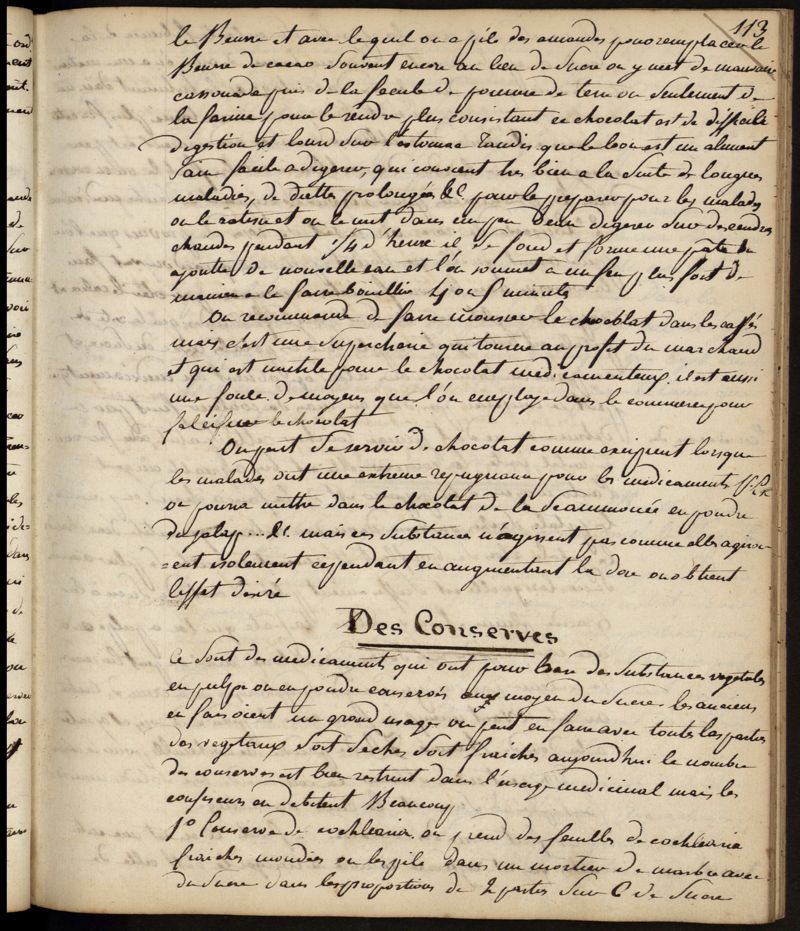 113
le Beurre et avec lequel on a pilé des amandes pour remplacer le
Beurre de cacao souvent encore au lieu de Sucre on y met de mauvaise
cassonade puis de la fecule de pomme de terre ou seulement de
la farine pour le rendre plus consistant ce chocolat est de difficile
digestion et lourd sur l'estomac tandis que le bon est un aliment
sain facile a digerer, qui convient tres bien a la suite de longues
maladies, de diettes prolongés &c. pour le preparer pour les malades
on le ratisse et on le met dans un peu d'eau digerer sur des cendres
chaudes pendant 1/4 d'heure il se fond et forme une pate on
ajoutte de nouvelle eau et l'on soumet a un feu plus fort de
maniere a le faire bouillir 4 ou 5 minutes
On recommande de faire mousser le chocolat dans les caffés
mais c'est une supercherie qui tourne au profit du marchand
et qui est inutile pour le chocolat medicamenteux. il est aussi
une foule de moyens que l'on employe dans le commerce pour
falcifier le chocolat
On peut se servir de chocolat comme excipient lorsque
les malades ont une extreme repugnance pour les medicaments
on poura mettre dans le chocolat de la Scammonée en poudre
du jalap... &c. mais ces substances n'agissent pas comme elles agiroi-
=ent isolement cependant en augmentant la dose on obtient
l'effet désiré
Des Conserves
Ce sont des medicaments qui ont pour base des substances vegetales
en pulpe ou en poudre conservés au moyen du Sucre les anciens
en faisoient un grand usage on peut en faire avec toutes les parties
des vegetaux soit seches soit fraiches aujourdhui le nombre
des conserves est bien restrint dans l'usage medicinal mais les
confiseurs en debitent Beaucoup
1o Conserve de cochlearia on prend des feuilles de cochlearia
fraiches mondées on les pile dans un mortier de marbre avec
du Sucre dans les proportions de 2 parties sur 6 de Sucre